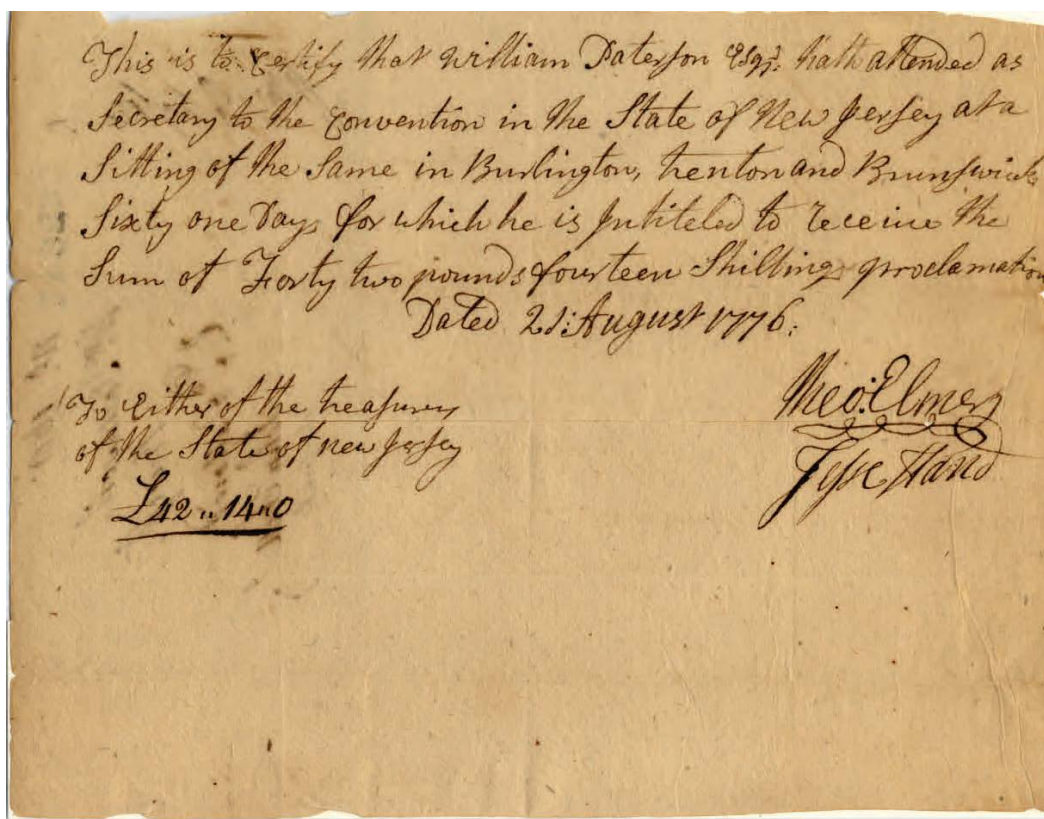 This is to Certify that William Paterson Esqr. hath attended as
Secretary to the Convention in the State of New Jersey at a
Sitting of the Same in Burlington, trenton and Brunswick
Sixty one Days for which he is Intiteled to receive the
Sum of Forty two pounds fourteen Shillings proclamation
Dated 21: August 1776:
To Either of the treasurey
of the State of new Jersey
£42 " 14 " 0
Theo: Elmer
Jesse Hand